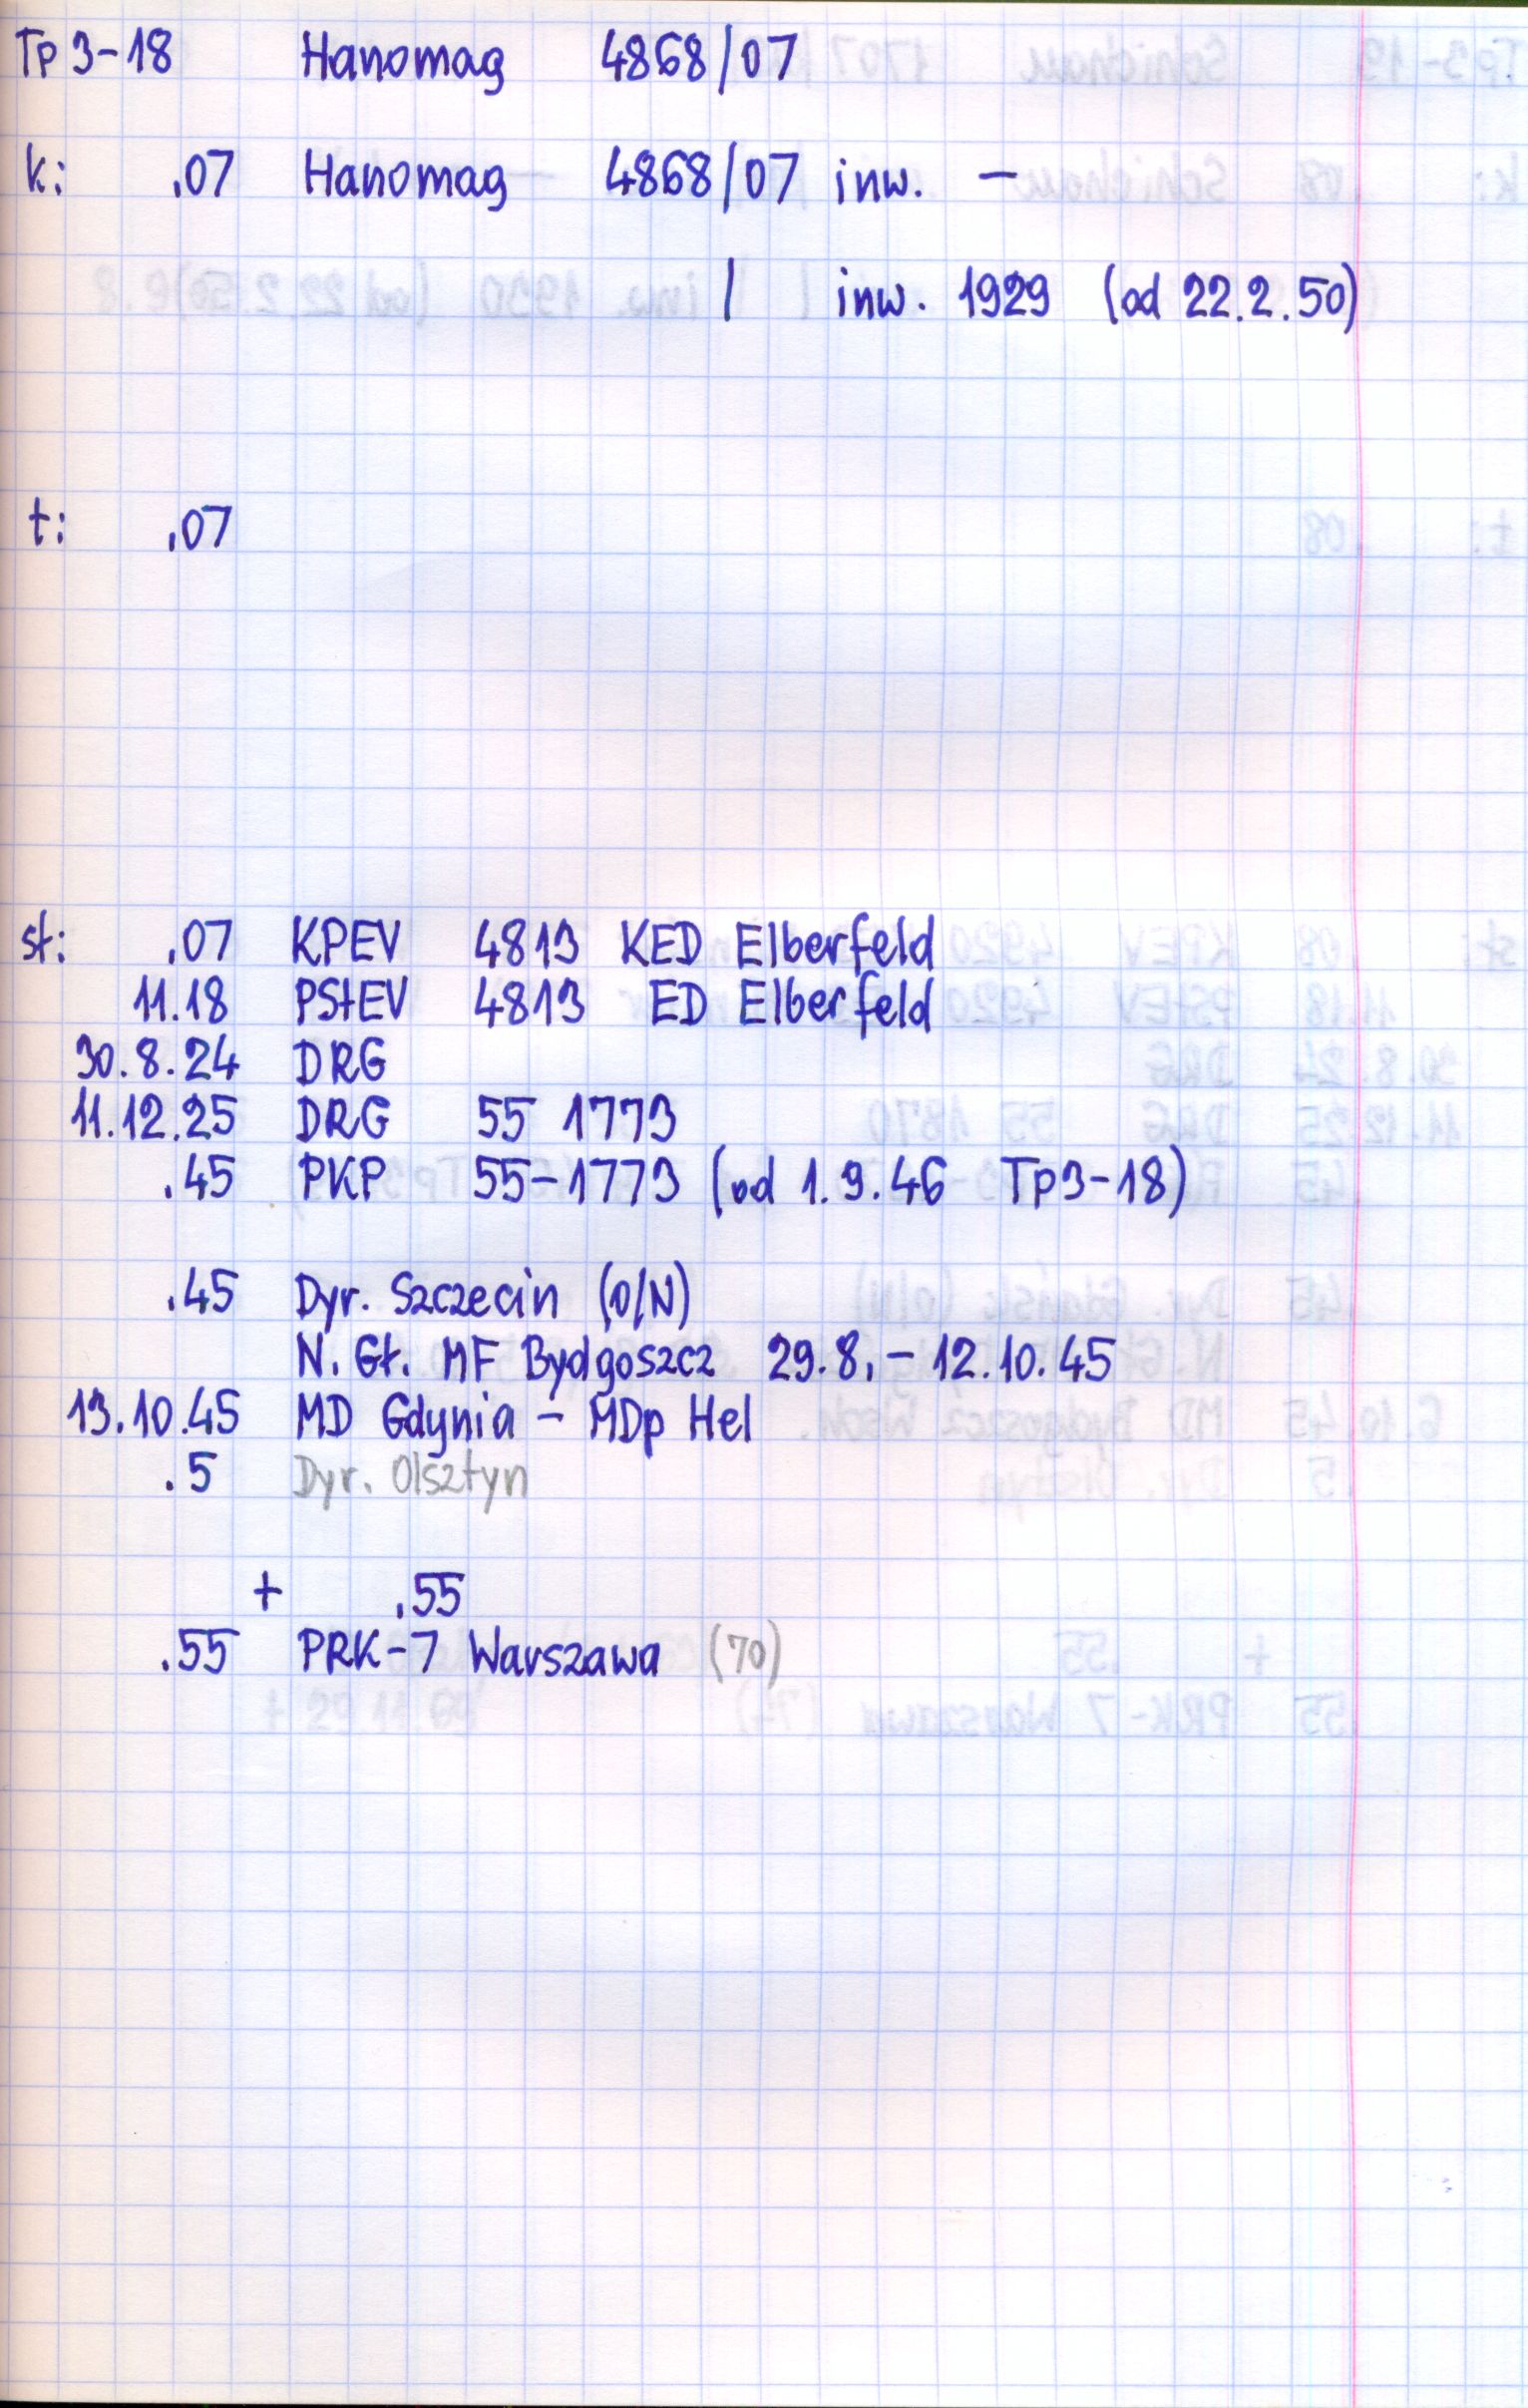 Tp3-18 Hanomag 4868/07
k: .07 Hanomag 4868/07 inw. –
/ inw. 1929 (od 22.2.50)
t: .07
st: .07 KPEV 4813 KED Elberfeld
11.18 PStEV 4813 ED Elberfeld
30.8.24 DRG
11.12.25 DRG 55 1773
.45 PKP 55-1773 (od 1.9.46 Tp3-18)
.45 Dyr. Szczecin (O/N)
N. Gł. MF Bydgoszcz 29.8.-12.10.45
13.10.45 MD Gdynia - MDp Hel
.5 Dyr. Olsztyn
+ .55
.55 PRK-7 Warszawa (70)